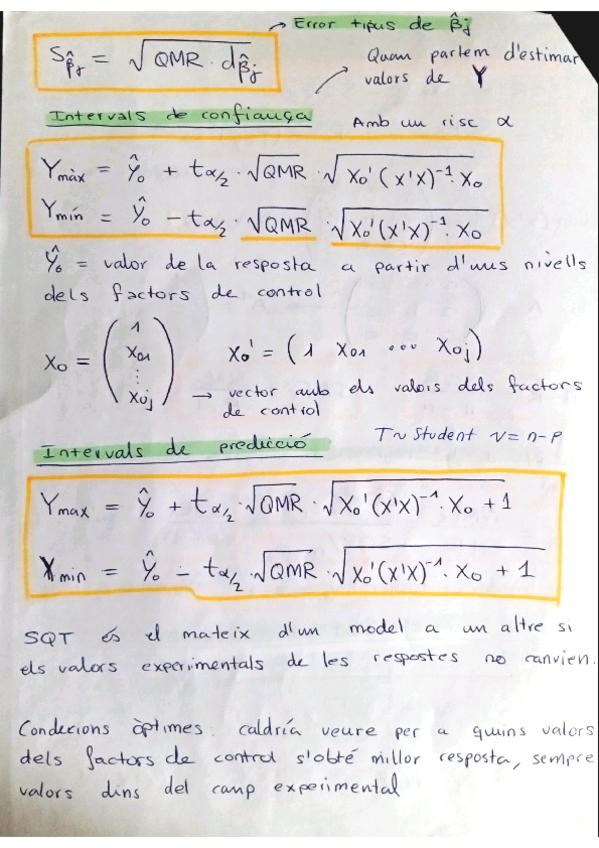 → Error tipus de β̂j
Sβ̂j = √QMR · dβ̂j
Quan partem d'estimar
valors de Y
Intervals de confiança
Amb un risc α
Ymàx = Ŷo + tα/2 · √QMR · √Xo'(X'X)⁻¹·Xo
Ymín = Ŷo - tα/2 · √QMR · √Xo'(X'X)⁻¹·Xo
Ŷo = valor de la resposta a partir d'uns nivells
dels factors de control
Xo = (1 Xo1 ⋮ Xoj) Xo' = (1 Xo1 ... Xoj)
→ vector amb els valors dels factors
de control
Intervals de predicció
T~Student ν = n-p
Ymax = Ŷo + tα/2 · √QMR · √Xo'(X'X)⁻¹·Xo + 1
Ymin = Ŷo - tα/2 · √QMR · √Xo'(X'X)⁻¹·Xo + 1
SQT és el mateix d'un model a un altre si
els valors experimentals de les respostes no canvien.
Condicions òptimes: caldría veure per a quins valors
dels factors de control s'obté millor resposta, sempre
valors dins del camp experimental